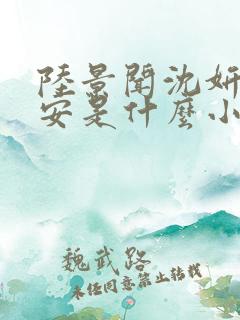 陸景聞沈妍
安是什麼小
魏武路
未经同意禁止转载